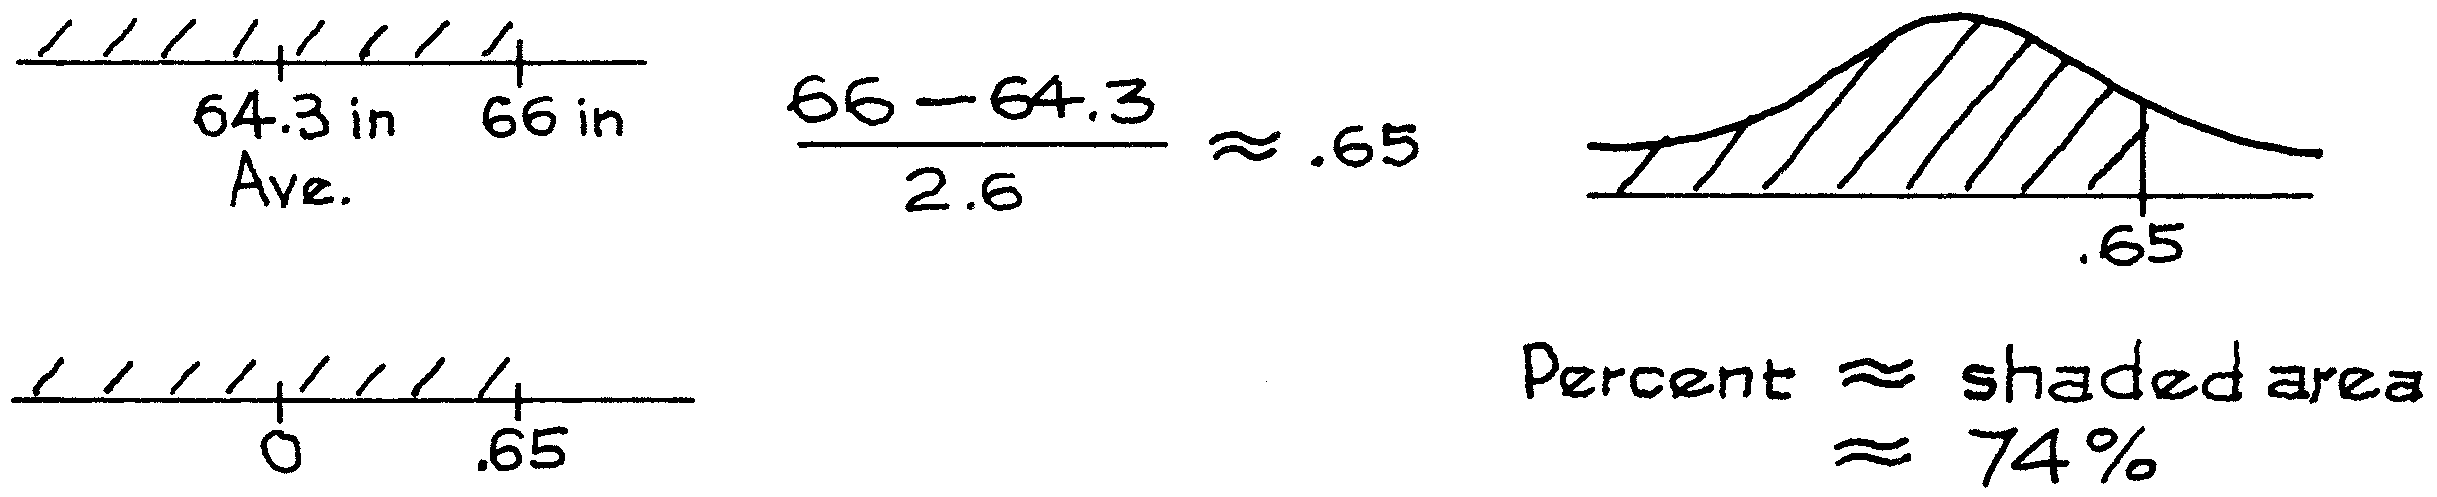 64.3 in 66 in
Ave.
66 − 64.3
2.6
≈ .65
.65
0 .65
Percent ≈ shaded area
≈ 74%